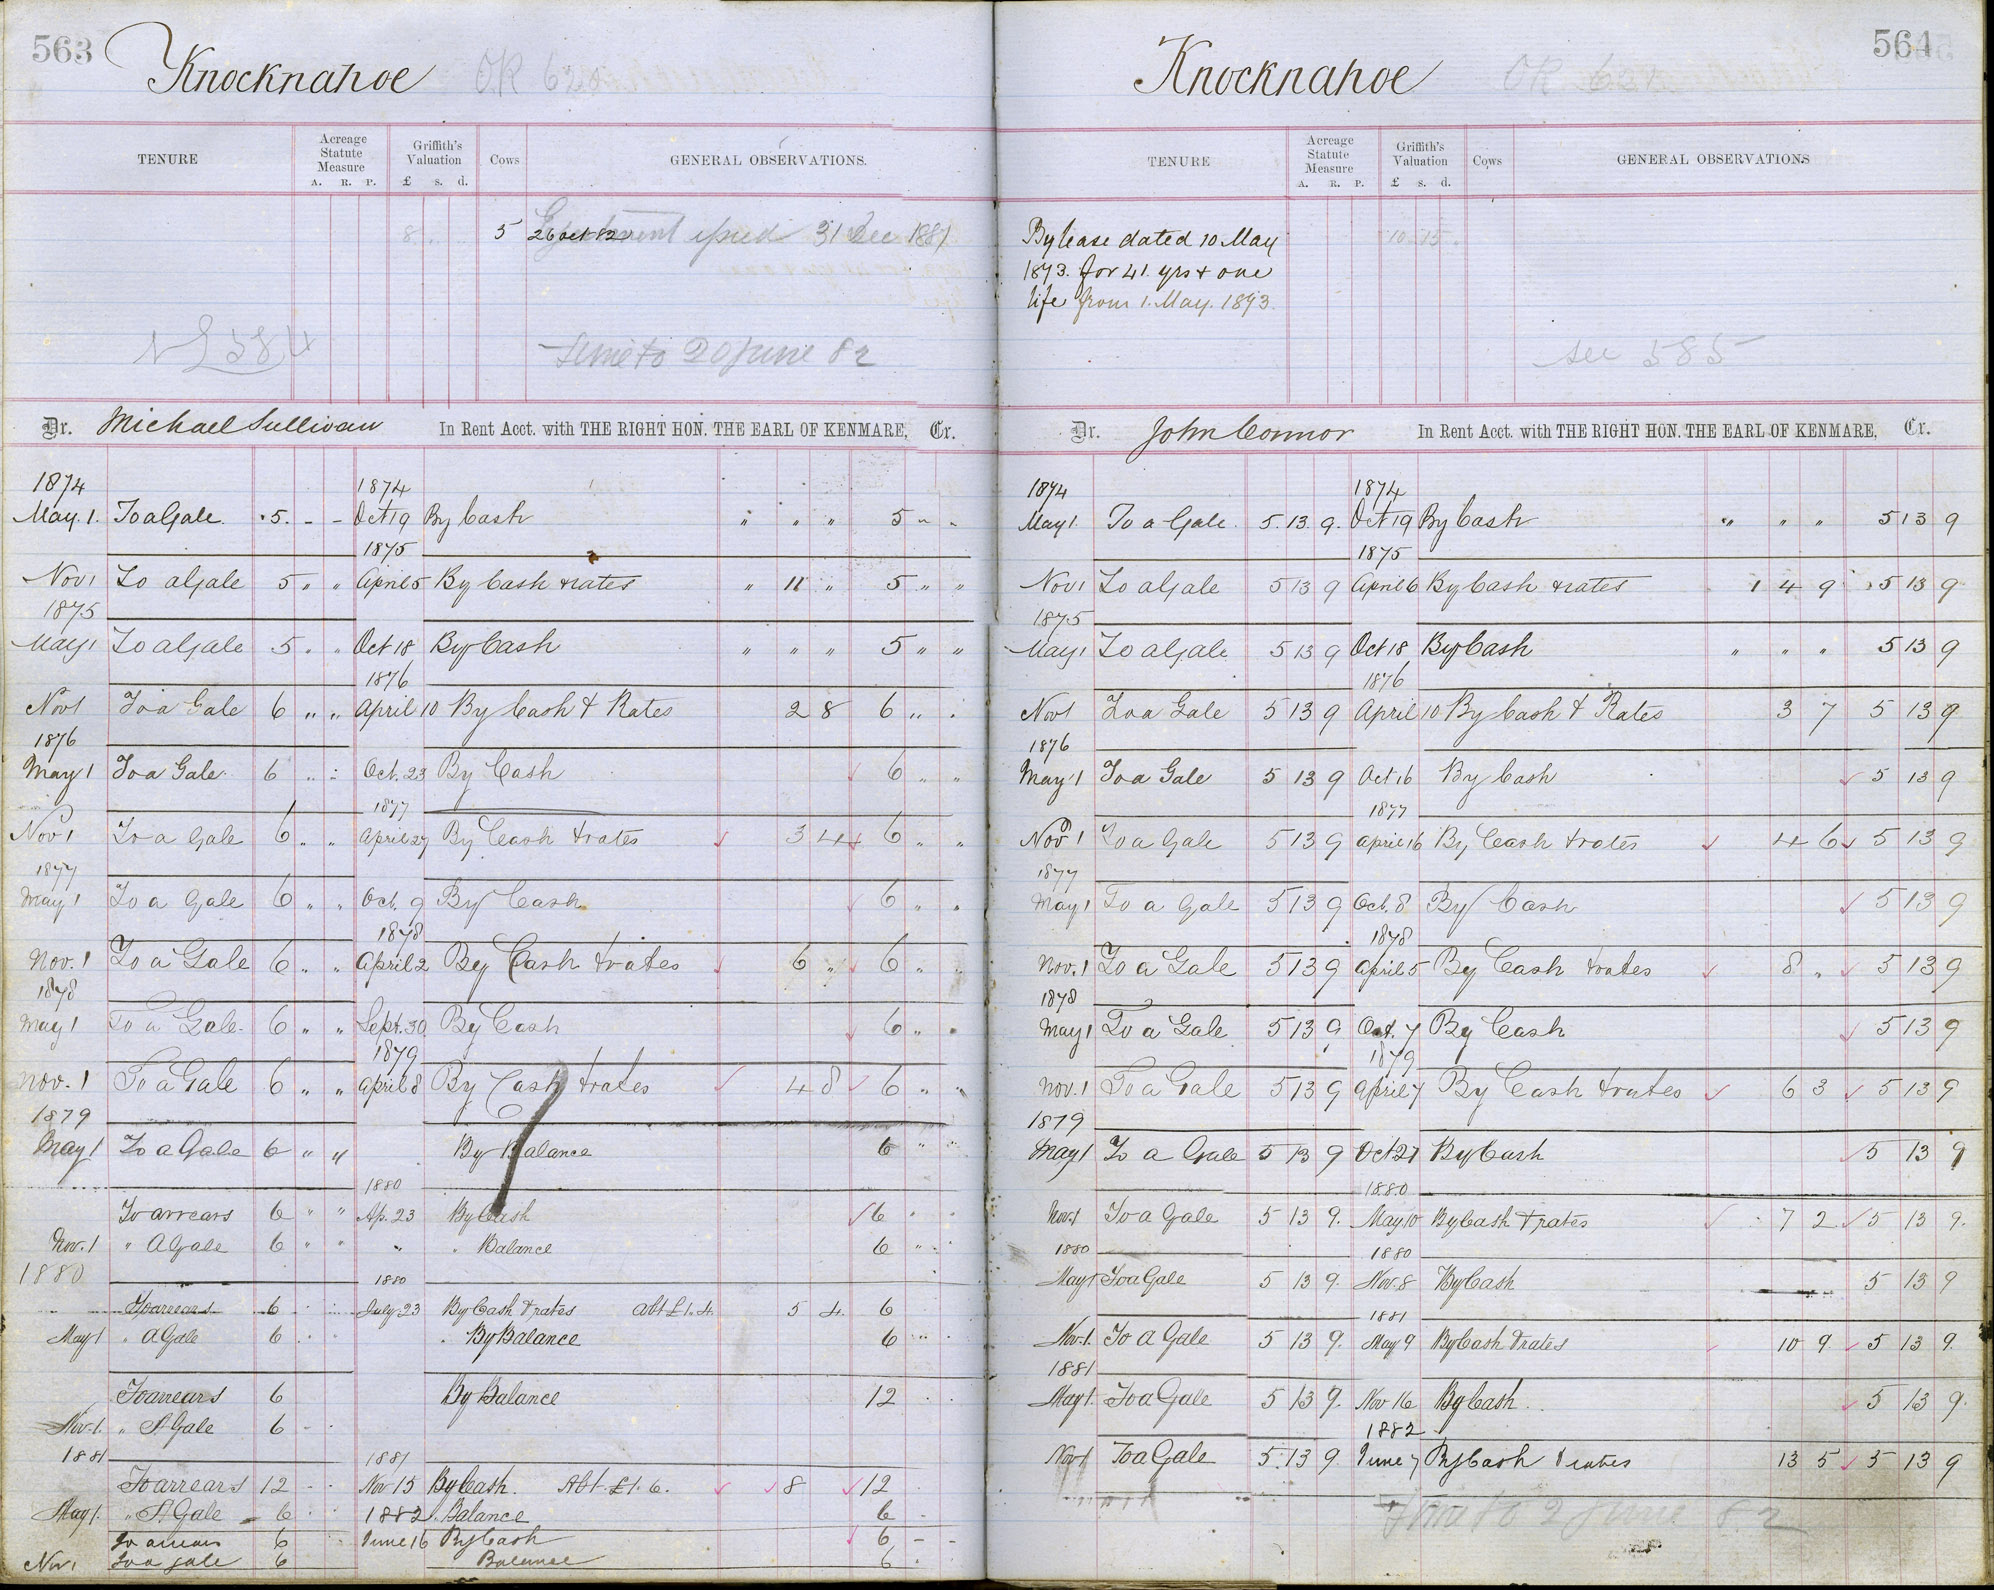 563
Knocknahoe OK 620
TENURE
Acreage Statute Measure
A. R. P.
Griffith's Valuation
£ s. d.
Cows
GENERAL OBSERVATIONS.
8 " " 5 26 Oct 82 Ejectment issued 31 Dec 1881
584
time to 20 June 82
Dr. Michael Sullivan In Rent Acct. with THE RIGHT HON. THE EARL OF KENMARE, Cr.
1874 1874
May. 1. To a Gale. 5. - - Oct 19 By Cash " " " 5 " "
1875
Nov 1 To a Gale 5 " " April 5 By Cash & rates " 11 " 5 " "
1875
May 1 To a Gale 5 " " Oct 18 By Cash " " " 5 " "
1876
Nov 1 To a Gale 6 " " April 10 By Cash & Rates 2 8 6 " "
1876
May 1 To a Gale 6 " " Oct. 23 By Cash 6 " "
1877
Nov 1 To a Gale 6 " " April 27 By Cash & rates 3 4 6 " "
1877
May 1 To a Gale 6 " " Oct. 9 By Cash 6 " "
1878
Nov. 1 To a Gale 6 " " April 2 By Cash & rates 6 " 6 " "
1878
May 1 To a Gale 6 " " Sept. 30 By Cash 6 " "
1879
Nov. 1 To a Gale 6 " " April 8 By Cash & rates 4 8 6 " "
1879
May 1 To a Gale 6 " " By Balance 6 " "
1880
To arrears 6 " " Ap. 23 By Cash 6 " "
Nov. 1 " A Gale 6 " " " " Balance 6 " "
1880 1880
To arrears 6 July 23 By Cash & rates Abt £1. 4. 5 4. 6
May 1 " A Gale 6 " By Balance 6 " "
To arrears 6 By Balance 12
Nov. 1. " A Gale 6
1881 1881
To arrears 12 Nov 15 By Cash. Abt. £1. 6. 8 12
May 1. " A Gale 6 1882 " Balance 6
To arrears 6 June 16 By Cash 6 - -
Nov 1 To a gale 6 Balance 6
564
Knocknahoe OK
TENURE
Acreage Statute Measure
A. R. P.
Griffith's Valuation
£ s. d.
Cows
GENERAL OBSERVATIONS
By lease dated 10 May 10 15
1873. for 41. yrs & one
life from 1. May. 1873
see 585
Dr. John Connor In Rent Acct. with THE RIGHT HON. THE EARL OF KENMARE, Cr.
1874 1874
May 1. To a Gale. 5. 13. 9. Oct 19 By Cash " " " 5 13 9
1875
Nov 1 To a Gale 5 13 9 April 6 By Cash & rates 1 4 9 5 13 9
1875
May 1 To a Gale 5 13 9 Oct 18 By Cash " " " 5 13 9
1876
Nov 1 To a Gale 5 13 9 April 10 By Cash & Rates 3 7 5 13 9
1876
May 1 To a Gale 5 13 9 Oct 16 By Cash 5 13 9
1877
Nov 1 To a Gale 5 13 9 April 16 By Cash & rates 4 6 5 13 9
1877
May 1 To a Gale 5 13 9 Oct. 8 By Cash 5 13 9
1878
Nov. 1 To a Gale 5 13 9 April 5 By Cash & rates 8 " 5 13 9
1878
May 1 To a Gale 5 13 9 Oct. 7 By Cash 5 13 9
1879
Nov. 1 To a Gale 5 13 9 April 7 By Cash & rates 6 3 5 13 9
1879
May 1 To a Gale 5 13 9 Oct 27 By Cash 5 13 9
1880
Nov. 1 To a Gale 5 13 9. May 10 By Cash & rates 7 2 5 13 9.
1880 1880
May 1 To a Gale 5 13 9. Nov. 8 By Cash 5 13 9
1881
Nov. 1. To a Gale 5 13 9. May 9 By Cash & rates 10 9 5 13 9.
1881
May 1. To a Gale 5 13 9. Nov 16 By Cash 5 13 9.
1882
Nov 1 To a Gale 5 13 9 June 7 By Cash & rates 13 5 5 13 9
Time to 2 June 82